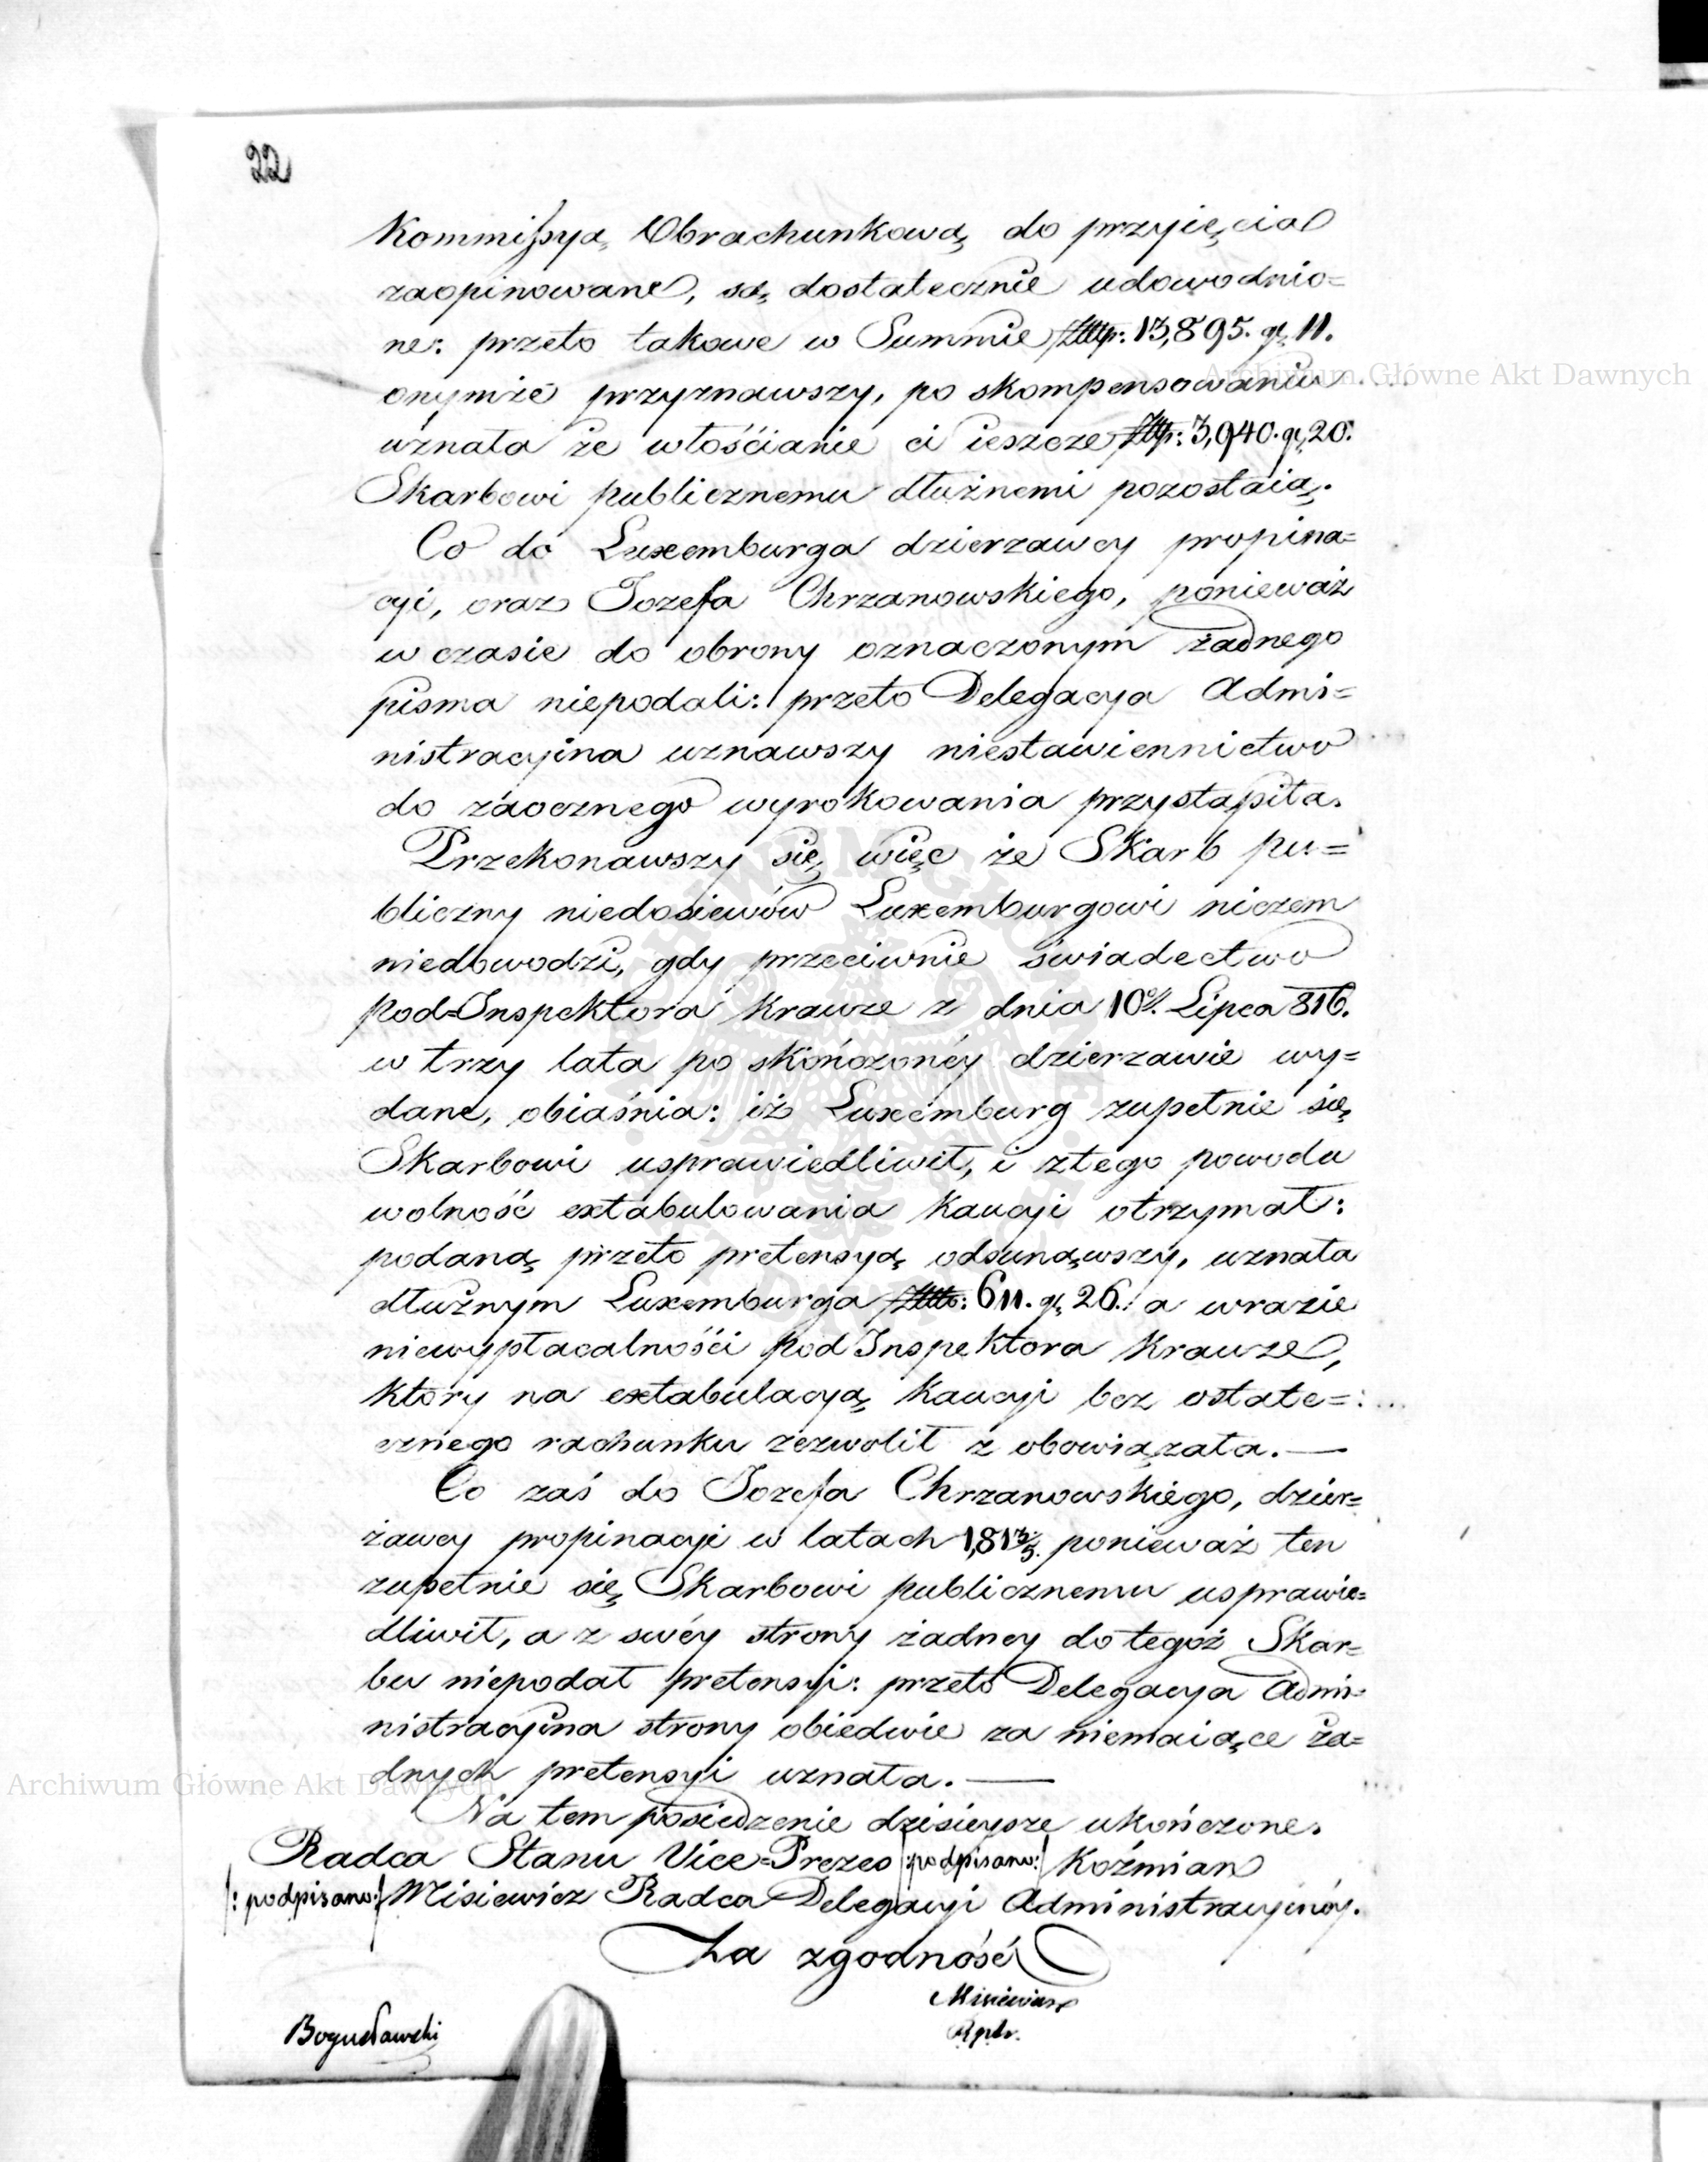 22
Kommissyą Obrachunkową do przyięcia
zaopinowane, są dostatecznie udowodnio=
ne: przeto takowe w Summie Złłtp: 13,895. gr. 11.
onymże przyznawszy, po skompensowaniu
uznała że włościanie ci ieszcze Złtp: 3,940. gr. 20.
Skarbowi publicznemu dłużnemi pozostaią.
Co do Luxemburga dzierzawcy propina=
cyi, oraz Jozefa Chrzanowskiego, ponieważ
w czasie do obrony oznaczonym żadnego
pisma niepodali: przeto Delegacya Admi=
nistracyina uznawszy niestawiennictwo
do zaocznego wyrokowania przystąpiła.
Przekonawszy się więc że Skarb pu=
bliczny niedosiewów Luxemburgowi niczem
niedowodzi, gdy przeciwnie świadectwo
pod=Inspektora Krauze z dnia 10go. Lipca 816.
w trzy lata po skończonéy dzierzawie wy=
dane, obiaśnia: iż Luxemburg zupełnie się
Skarbowi usprawiedliwił, i ztego powodu
wolność extabulowania Kaucyi otrzymał:
podaną przeto pretensyą odsunąwszy, uznała
dłużnym Luxemburga Złłto: 611. gr. 26.: a wrazie
niewypłacalności pod Inspektora Krauze,
ktory na extabulacyą Kaucyi bez ostate=
cznego rachunku zezwolił z obowiązała.—
Co zaś do Jozefa Chrzanowskiego, dzier=
żawcy propinacyi w latach 1813/5. ponieważ ten
zupełnie się Skarbowi publicznemu usprawie=
dliwił, a z swéy strony żadney do tegoż Skar=
bu niepodał pretensyi: przeto Delegacya Admi=
nistracyina strony obiedwie za niemaiące ża=
dnych pretensyi uznała.—
Na tem posiedzenie dzisieysze ukończone.
Radca Stanu Vice=Prezes /:podpisano:/ Koźmian
/:podpisano:/ Misiewicz Radca Delegacyi Administracyinéy.
Za zgodność
Misiewicz
Bogusławski
Archiwum Główne Akt Dawnych
Archiwum Główne Akt Dawnych